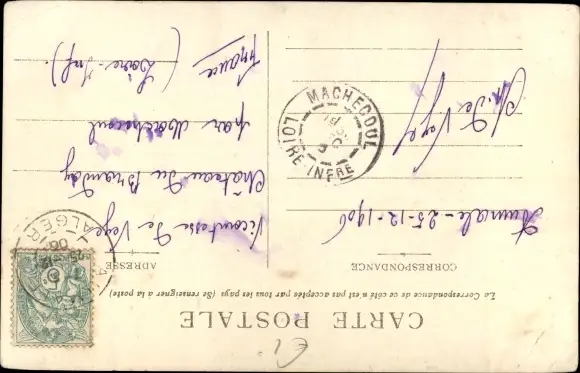 CARTE POSTALE
La Correspondance de ce côté n'est pas acceptée par tous les pays (Se renseigner à la poste)
CORRESPONDANCE
Aumale - 25-12-1906
De Vezé
ADRESSE
Vicomtesse De Vezé
Château du Branday
par Machecoul
(Loire-Inf).
France
MACHECOUL
LOIRE-INFRE
ALGER
E1